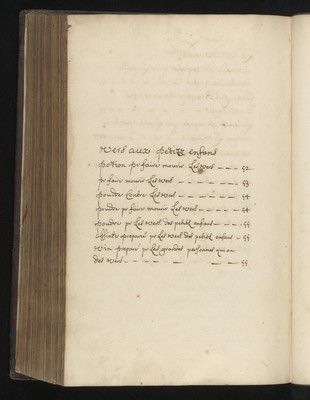 Vers aux petitz enfans
potion pr faire mourir Les vers — — 52
pr faire mourir Les vers — — — — — 53
poudre contre Les vers — — — — — 54
poudre pr faire mourir Les vers — — — 54
poudre pr Les vers des petitz enfans — — — 55
preparé pr Les vers des petitz enfans — 55
Vin preparé pr Les grandes personnes qui on
des vers — — — — — — — — — 55